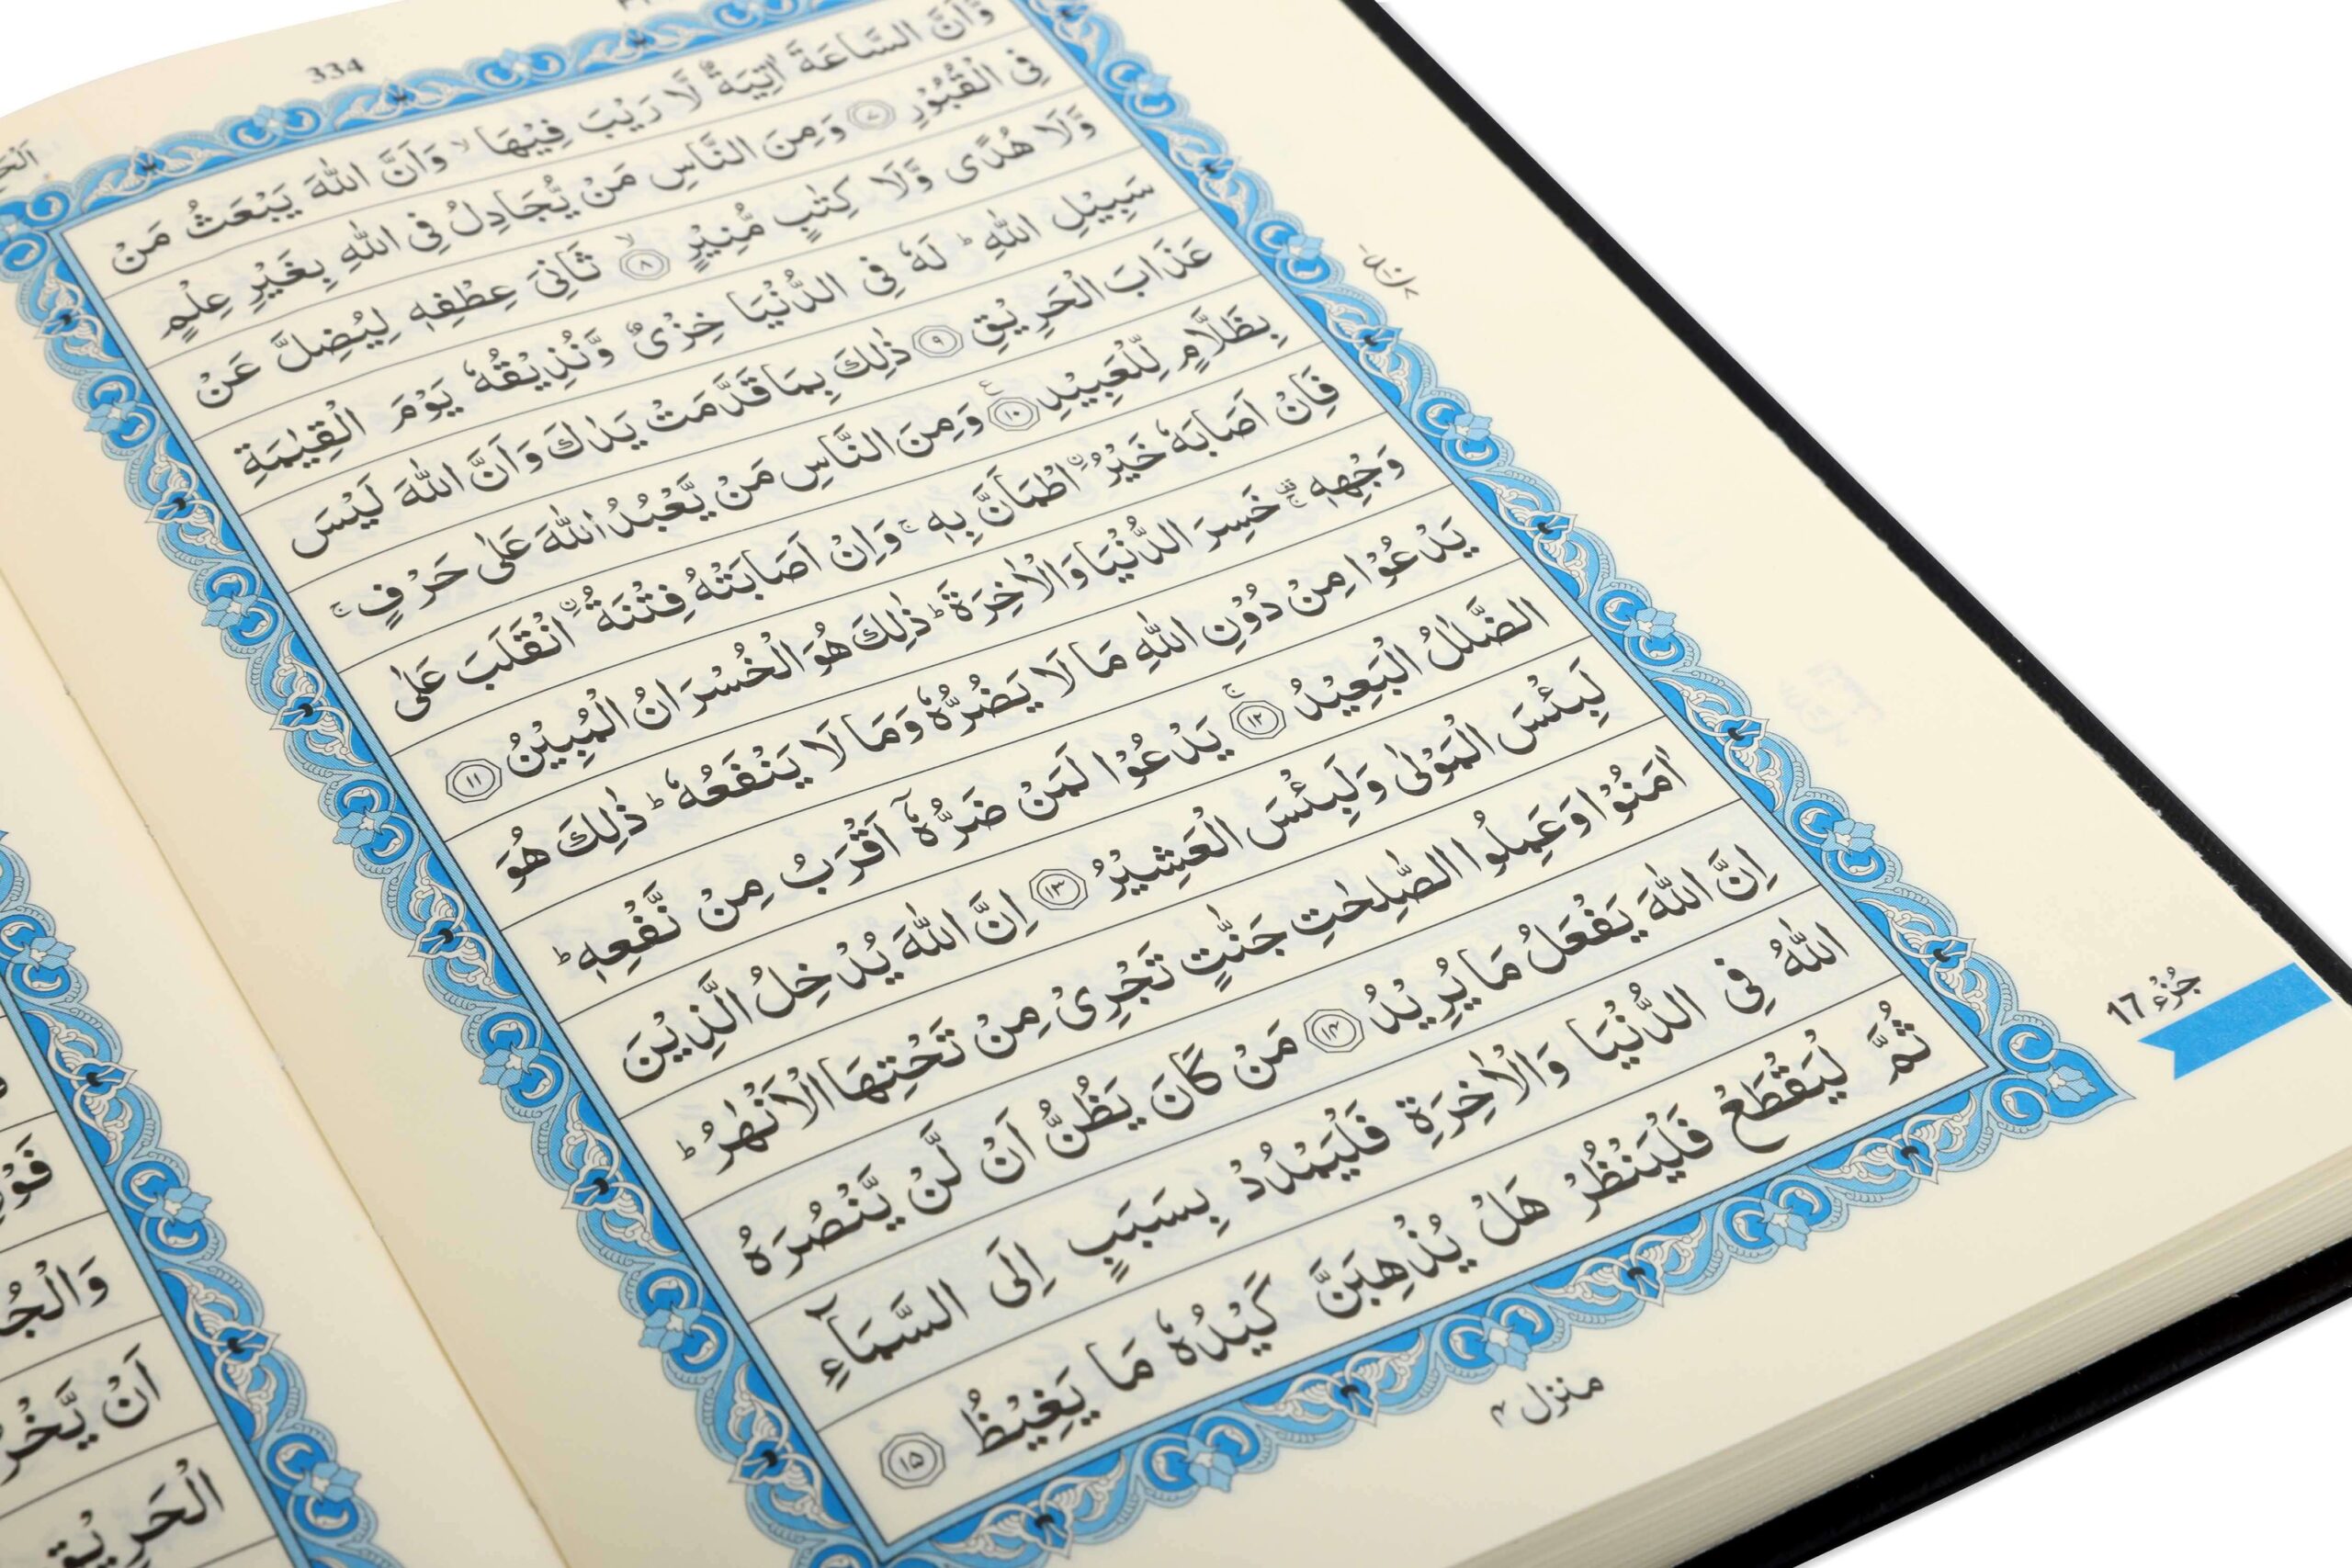 334
وَّاَنَّ السَّاعَةَ اٰتِيَةٌ لَّا رَيْبَ فِيْهَا ۙ وَاَنَّ اللّٰهَ يَبْعَثُ مَنْ
فِى الْقُبُوْرِ ۝۷ وَمِنَ النَّاسِ مَنْ يُّجَادِلُ فِى اللّٰهِ بِغَيْرِ عِلْمٍ
وَّلَا هُدًى وَّلَا كِتٰبٍ مُّنِيْرٍ ۙ ۝۸ ثَانِىَ عِطْفِهٖ لِيُضِلَّ عَنْ
سَبِيْلِ اللّٰهِ ؕ لَهٗ فِى الدُّنْيَا خِزْىٌ وَّنُذِيْقُهٗ يَوْمَ الْقِيٰمَةِ
عَذَابَ الْحَرِيْقِ ۝۹ ذٰلِكَ بِمَا قَدَّمَتْ يَدٰكَ وَاَنَّ اللّٰهَ لَيْسَ
بِظَلَّامٍ لِّلْعَبِيْدِ ۝۱۰ وَمِنَ النَّاسِ مَنْ يَّعْبُدُ اللّٰهَ عَلٰى حَرْفٍ ۚ
فَاِنْ اَصَابَهٗ خَيْرُ ۨاطْمَاَنَّ بِهٖ ۚ وَاِنْ اَصَابَتْهُ فِتْنَةُ ۨانْقَلَبَ عَلٰى
وَجْهِهٖ ۚ خَسِرَ الدُّنْيَا وَالْاٰخِرَةَ ؕ ذٰلِكَ هُوَ الْخُسْرَانُ الْمُبِيْنُ ۝۱۱
يَدْعُوْا مِنْ دُوْنِ اللّٰهِ مَا لَا يَضُرُّهٗ وَمَا لَا يَنْفَعُهٗ ؕ ذٰلِكَ هُوَ
الضَّلٰلُ الْبَعِيْدُ ۚ ۝۱۲ يَدْعُوْا لَمَنْ ضَرُّهٗۤ اَقْرَبُ مِنْ نَّفْعِهٖ ؕ
لَبِئْسَ الْمَوْلٰى وَلَبِئْسَ الْعَشِيْرُ ۝۱۳ اِنَّ اللّٰهَ يُدْخِلُ الَّذِيْنَ
اٰمَنُوْا وَعَمِلُوا الصّٰلِحٰتِ جَنّٰتٍ تَجْرِىْ مِنْ تَحْتِهَا الْاَنْهٰرُ ؕ
اِنَّ اللّٰهَ يَفْعَلُ مَا يُرِيْدُ ۝۱۴ مَنْ كَانَ يَظُنُّ اَنْ لَّنْ يَّنْصُرَهُ
اللّٰهُ فِى الدُّنْيَا وَالْاٰخِرَةِ فَلْيَمْدُدْ بِسَبَبٍ اِلَى السَّمَآءِ
ثُمَّ لْيَقْطَعْ فَلْيَنْظُرْ هَلْ يُذْهِبَنَّ كَيْدُهٗ مَا يَغِيْظُ ۝۱۵
جُزْء 17
منزل ۴
وَالْجُ
اَنْ يَّخْرُ
الْحَرِيْقِ